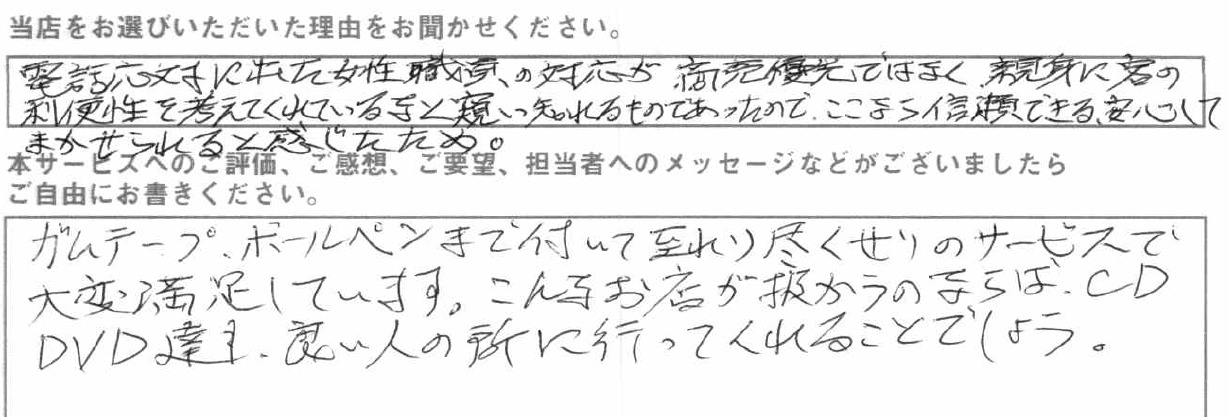 当店をお選びいただいた理由をお聞かせください。
電話応対に出した女性職員の対応が商売優先ではなく親身に客の
利便性を考えてくれているなと窺い知れるものであったので、ここなら信頼できる、安心して
まかせられると感じたため。
本サービスへのご評価、ご感想、ご要望、担当者へのメッセージなどがございましたら
ご自由にお書きください。
ガムテープ、ボールペンまで付いて至れり尽くせりのサービスで
大変満足しています。こんなお店が扱かうのならば、CD
DVD達も、良い人の所に行ってくれることでしょう。